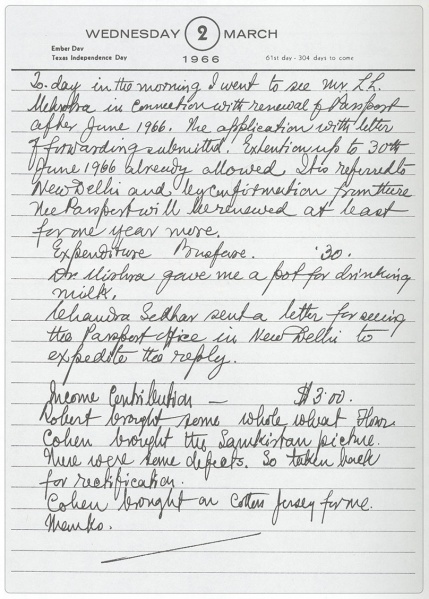 WEDNESDAY 2 MARCH
Ember Day
Texas Independence Day
1966
61st day - 304 days to come
To-day in the morning I went to see Mr. L.L.
Mehrotra in connection with renewal of Passport
after June 1966. The application with letter
of forwarding submitted. Extention up to 30th
June 1966 already allowed. It is referred to
New Delhi and by confirmation from there
the Passport will be renewed at least
for one year more.
Expenditure Busfare. '30.
Dr. Mishra gave me a pot for drinking
milk.
Chandra Sekhar sent a letter for seeing
the Passport office in New Delhi to
expedite the reply.
Income Contribution — $3.00.
Robert brought some whole wheat Flour
Cohen brought the Samkirtan picture.
There were some defects. So taken back
for rectification.
Cohen brought on cotton Jersey for me.
Thanks.